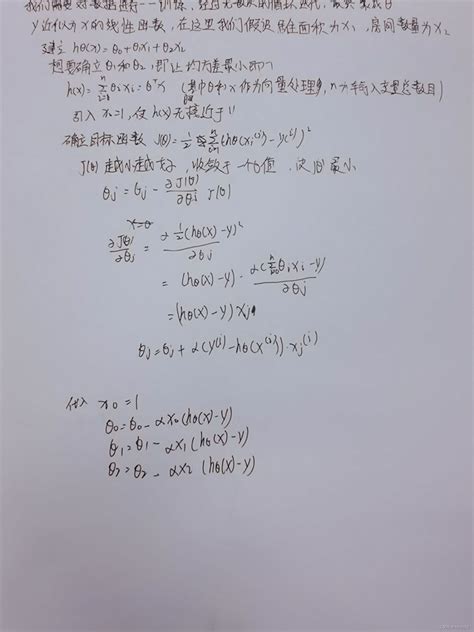 我们需要对数据进行一训练，经过无数次的循环迭代，最终
y近似为x的线性函数，在这里我们假设居住面积为x₁，房间数量为x₂
建立 hθ(x)=θ₀+θ₁x₁+θ₂x₂
想要确立θ₁和θ₂，即让均方差最小即可
h(x)=∑ⁿᵢ₌₀ θᵢxᵢ=θᵀx (其中θ和x作为向量处理，n为输入变量总数目)
引入x₀=1，使h(x)无接近于y
确立目标函数 J(θ)=½ ∑(hθ(x⁽ⁱ⁾)-y⁽ⁱ⁾)²
J(θ)越小越好，收敛于一个θ值，使J(θ)最小
θj=θj-∂J(θ)/∂θj J(θ)
∂J(θ)/∂θj = ∂½(hθ(x)-y)²/∂θj
=(hθ(x)-y)·∂(∑ⁿᵢ₌₀θᵢxᵢ-y)/∂θj
=(hθ(x)-y)xj
θj=θj+α(y⁽ⁱ⁾-hθ(x⁽ⁱ⁾))·xj⁽ⁱ⁾
代入 x₀=1
θ₀=θ₀-αx₀(hθ(x)-y)
θ₁=θ₁-αx₁(hθ(x)-y)
θ₂=θ₂-αx₂(hθ(x)-y)